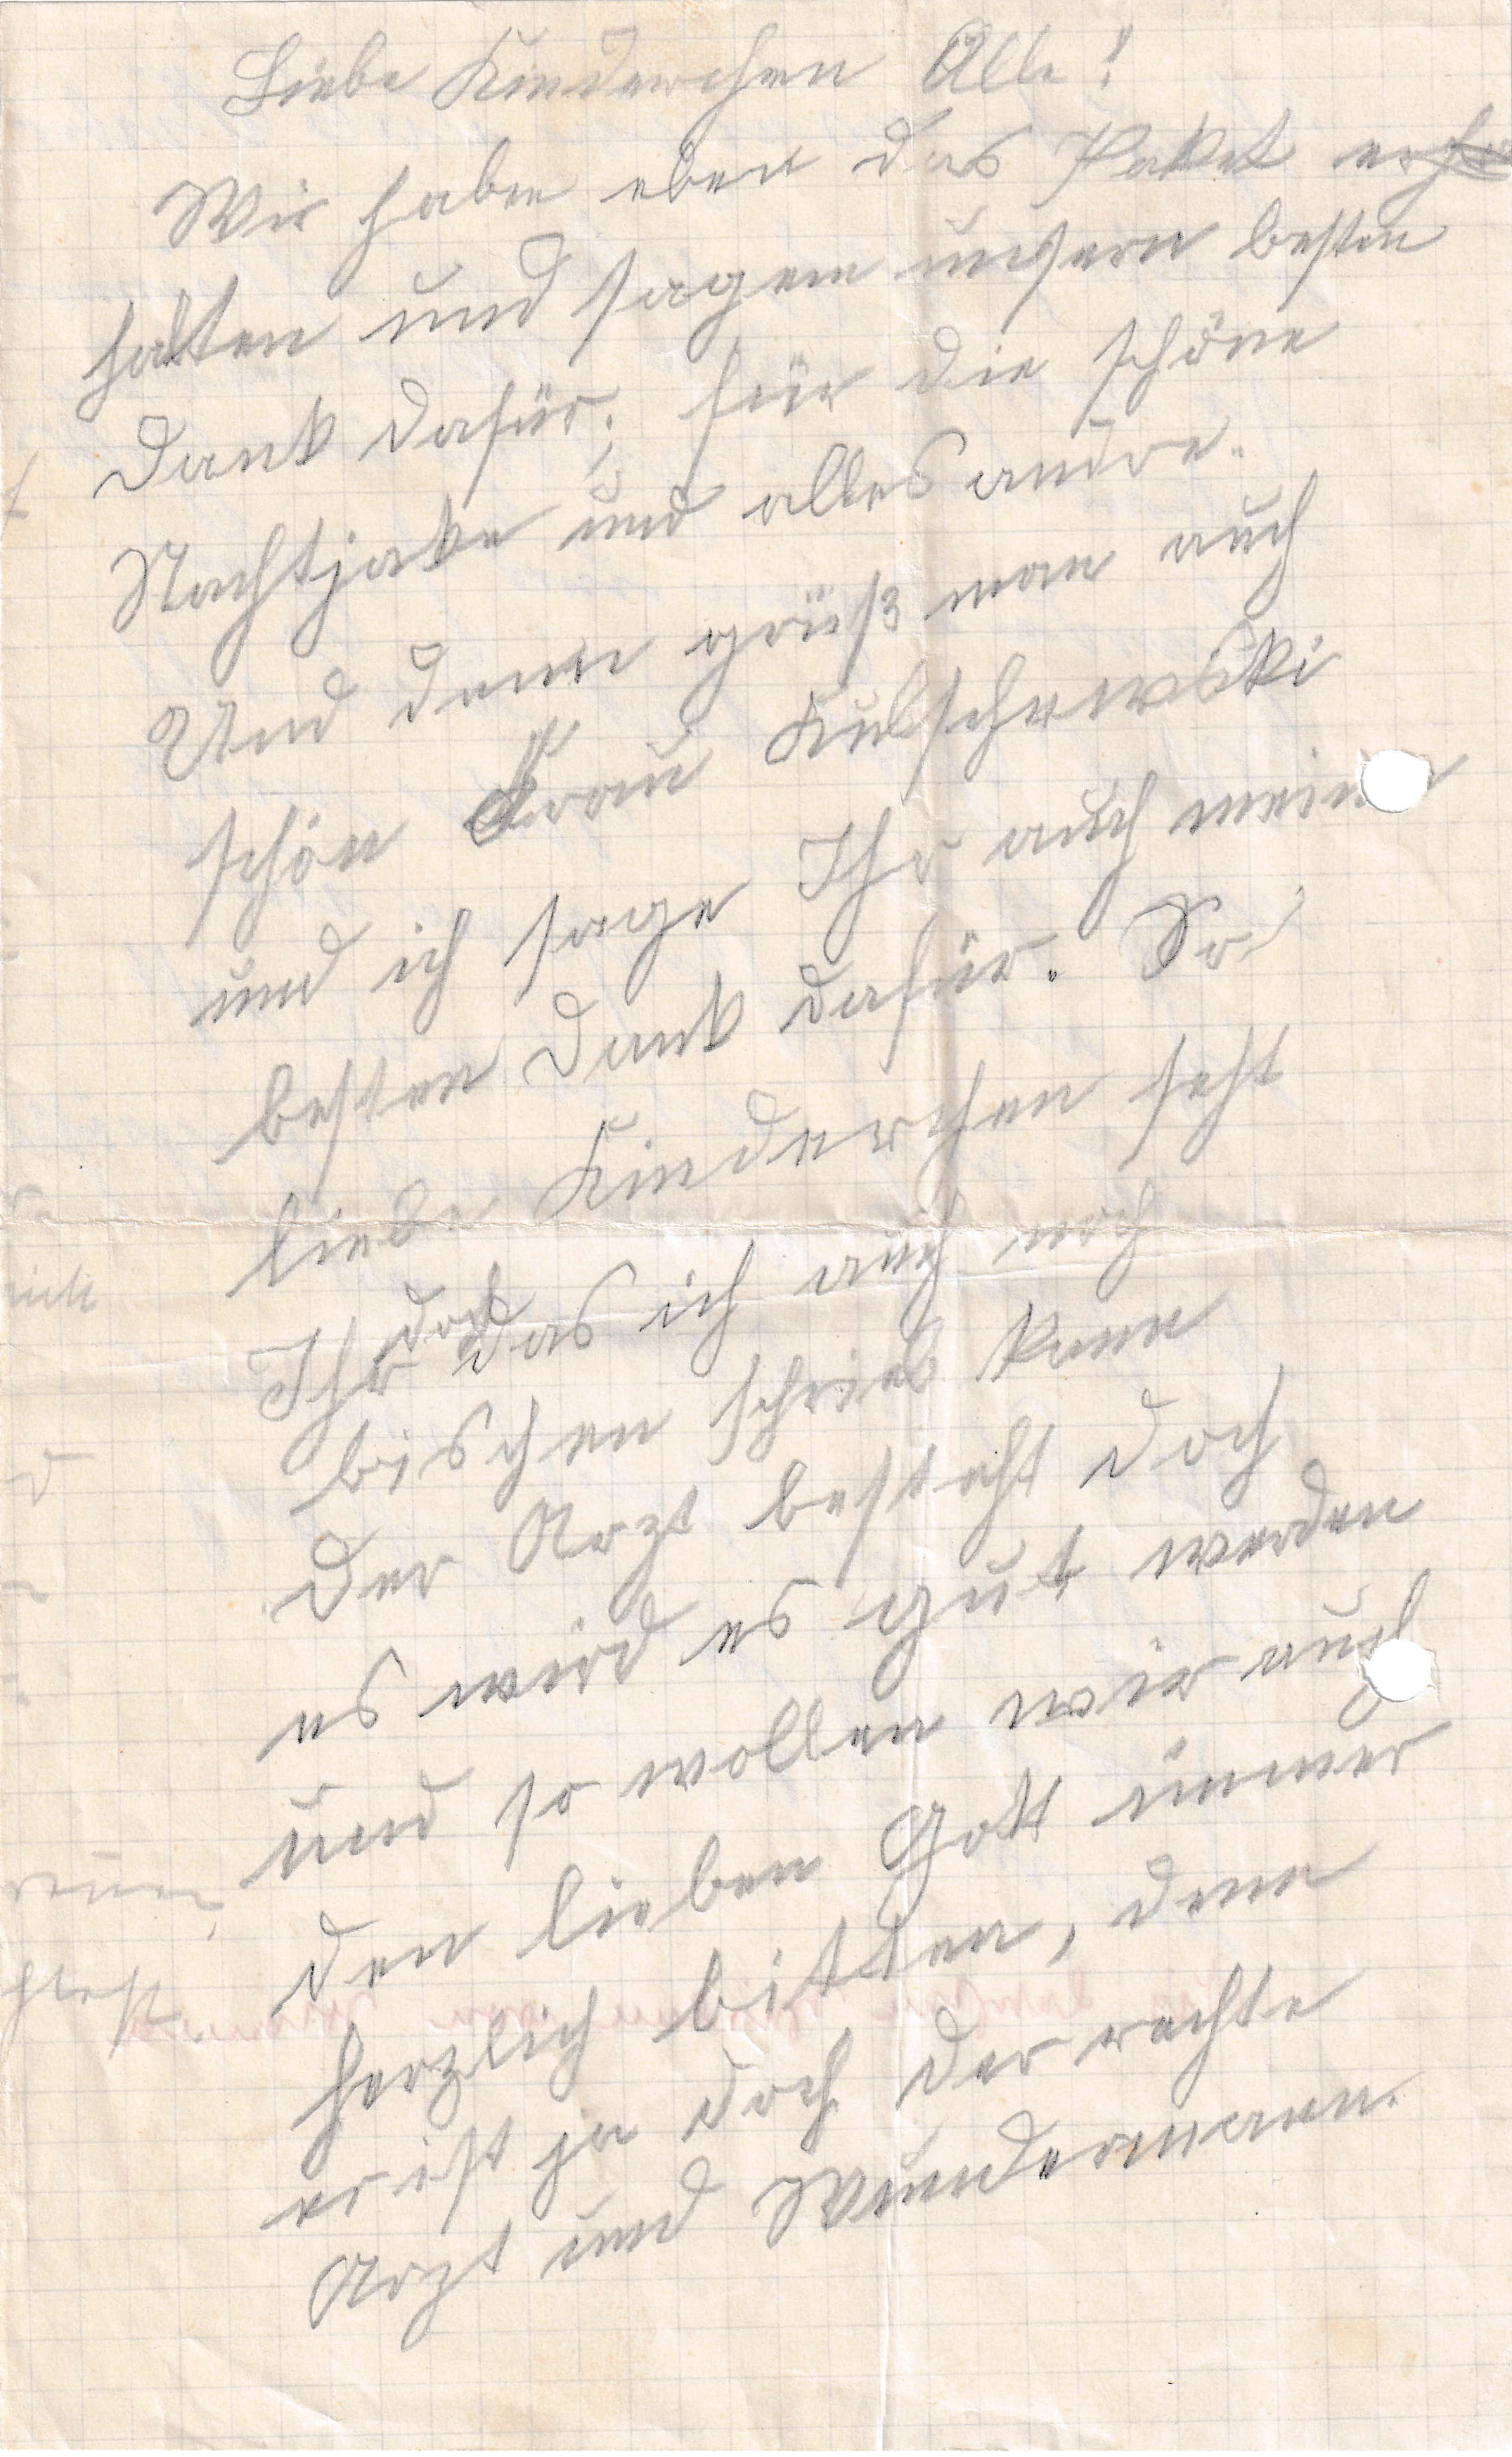 Liebe Kinderchen Alle!
Wir haben eben das Paket er
halten und sagen unsern besten
Dank dafür; für die schöne
Nachtjake und alles andre.
Und dann grüß man auch
schön Frau Kulschewski
und ich sage Ihr auch mein
besten Dank dafür. So
liebe Kinderchen seht
Ihr doch das ich auch noch
bischen schrieb kann
Der Arzt besteht doch
es wird es gut werden
und so wollen wir auch
den lieben Gott immer
herzlich bitten, denn
er ist ja doch der rechte
Arzt und Wundermann.